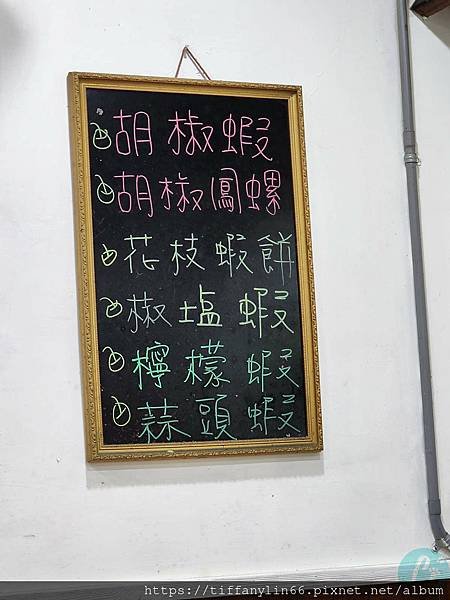 胡椒蝦
胡椒鳳螺
花枝蝦餅
椒塩蝦
檸檬蝦
蒜頭蝦
https://tiffanylin66.pixnet.net/album